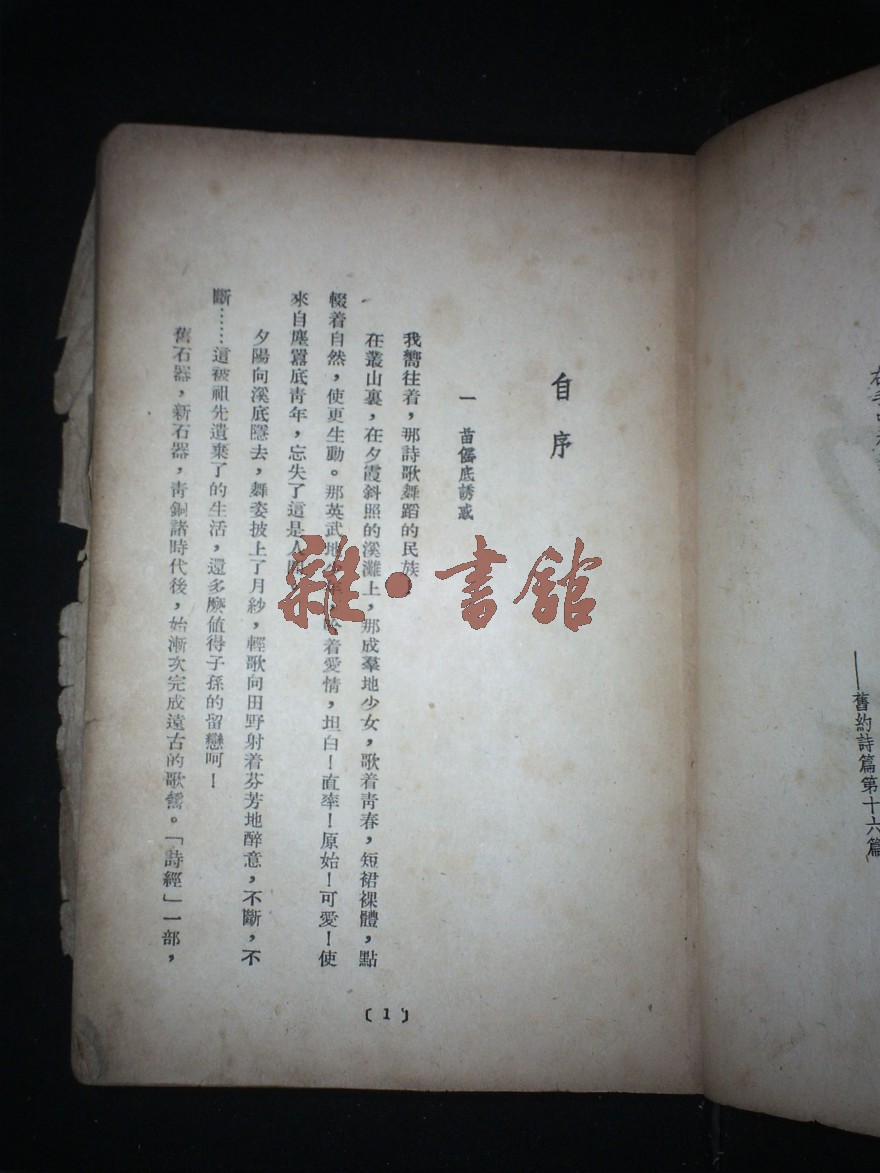 舊約詩篇第十六篇
自序
一 苗傜底誘惑
我嚮往着，那詩歌舞蹈的民族
在叢山裏，在夕霞斜照的溪灘上，那成羣地少女，歌着青春，短裙裸體，點
輟着自然，使更生動。那英武地少年，着愛情，坦白！直率！原始！可愛！使
來自塵囂底靑年，忘失了這是人間
夕陽向溪底隱去，舞姿披上了月紗，輕歌向田野射着芬芳地醉意，不斷，不
斷……這被祖先遺棄了的生活，還多麽値得子孫的留戀呵！
舊石器，新石器，靑銅諸時代後，始漸次完成遠古的歌舊。「詩經」一部，
〔1〕
雜·書館